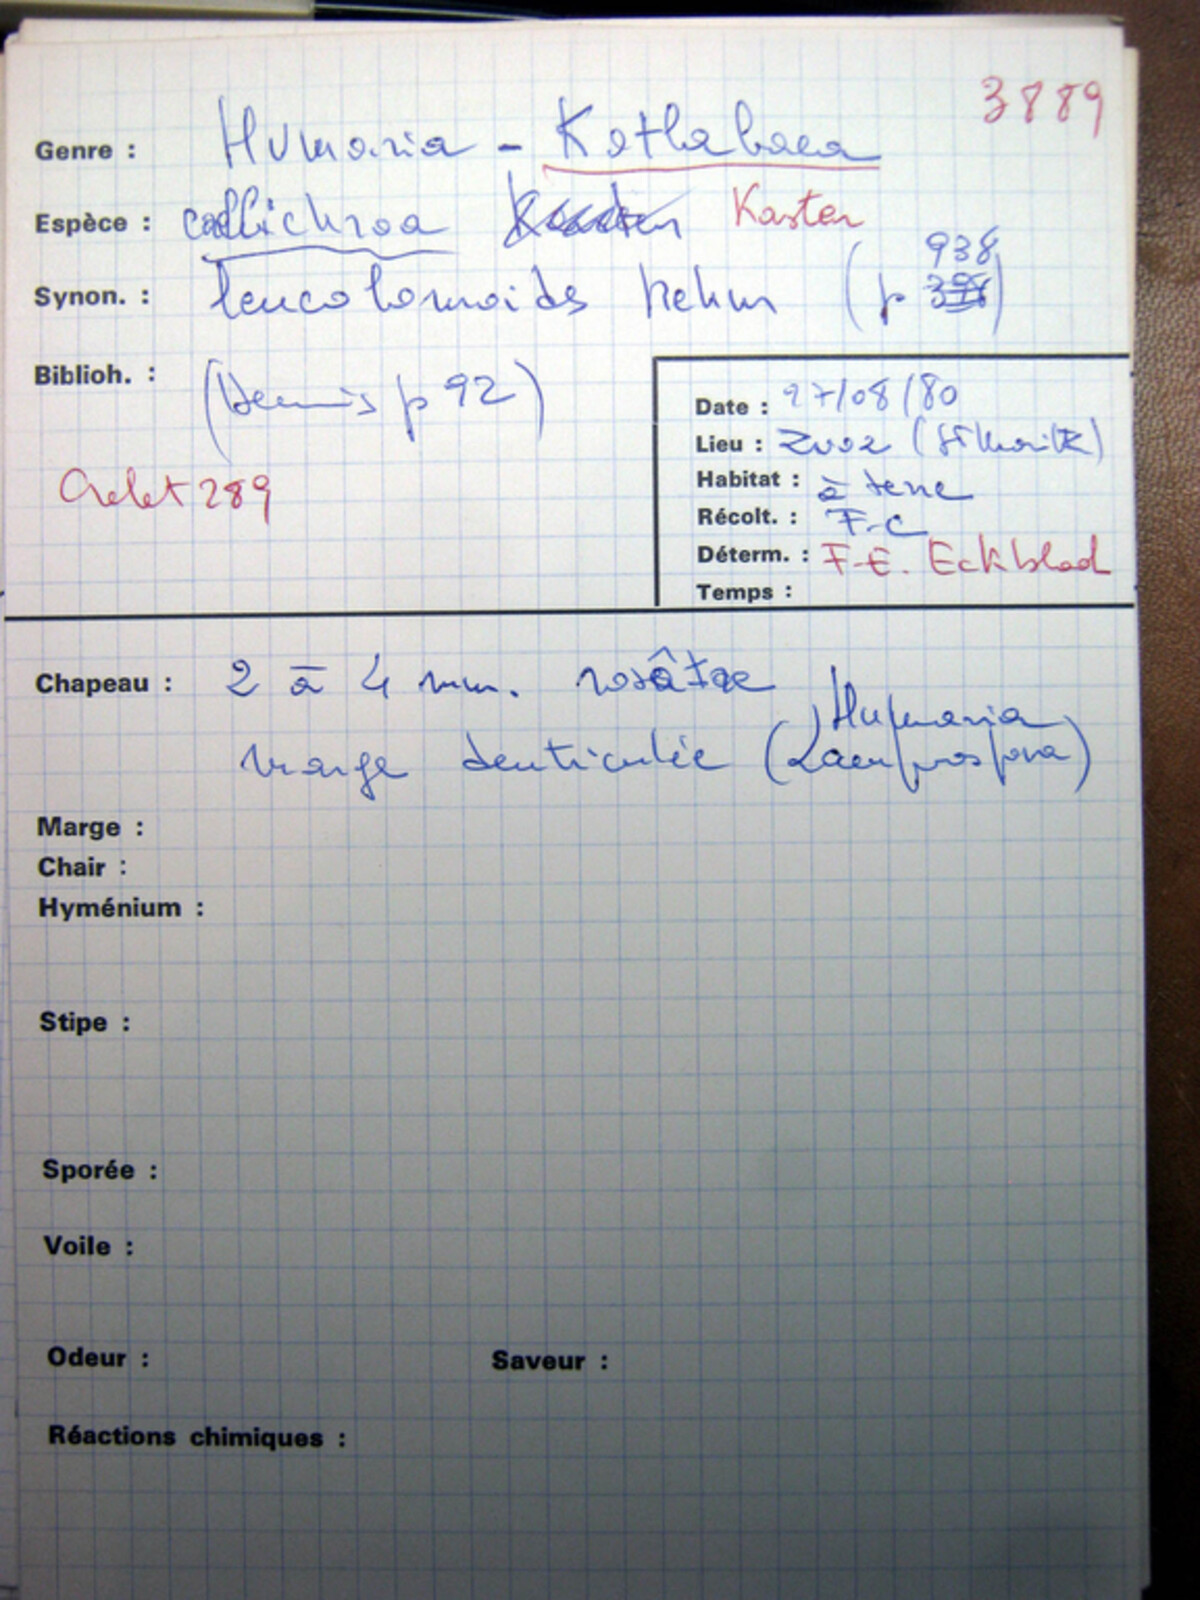 3889
Genre : Humaria - Kotlabaea
Espèce : callichroa Karsten
Synon. : leucolomoides Rehm (p 938)
Biblioh. : (Dennis p 92)
Date : 27/08/80
Lieu : Zuoz (St Moritz)
Crelet 289
Habitat : à terre
Récolt. : F-C
Déterm. : F-E. Eckblad
Temps :
Chapeau : 2 à 4 mm. rosâtre
Humaria
marge denticulée (Lamprospora)
Marge :
Chair :
Hyménium :
Stipe :
Sporée :
Voile :
Odeur : Saveur :
Réactions chimiques :